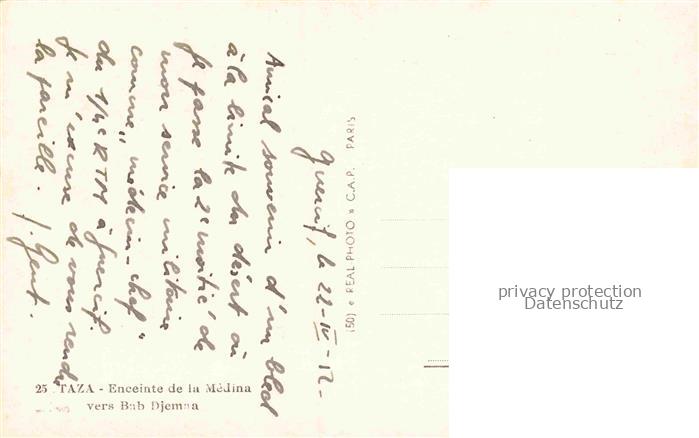 Guercif, le 22-IV-52-
Amical souvenir d'un bled
à la limite du désert où
je passe la 2e moitié de
mon service militaire
comme "médecin-chef"
du RTM à Guercif.
Je m'excuse de vous rendre
la pareille.
J. Gent.
25 TAZA - Enceinte de la Médina
vers Bab Djemaa
(50) • REAL-PHOTO • C.A.P. PARIS
privacy protection
Datenschutz